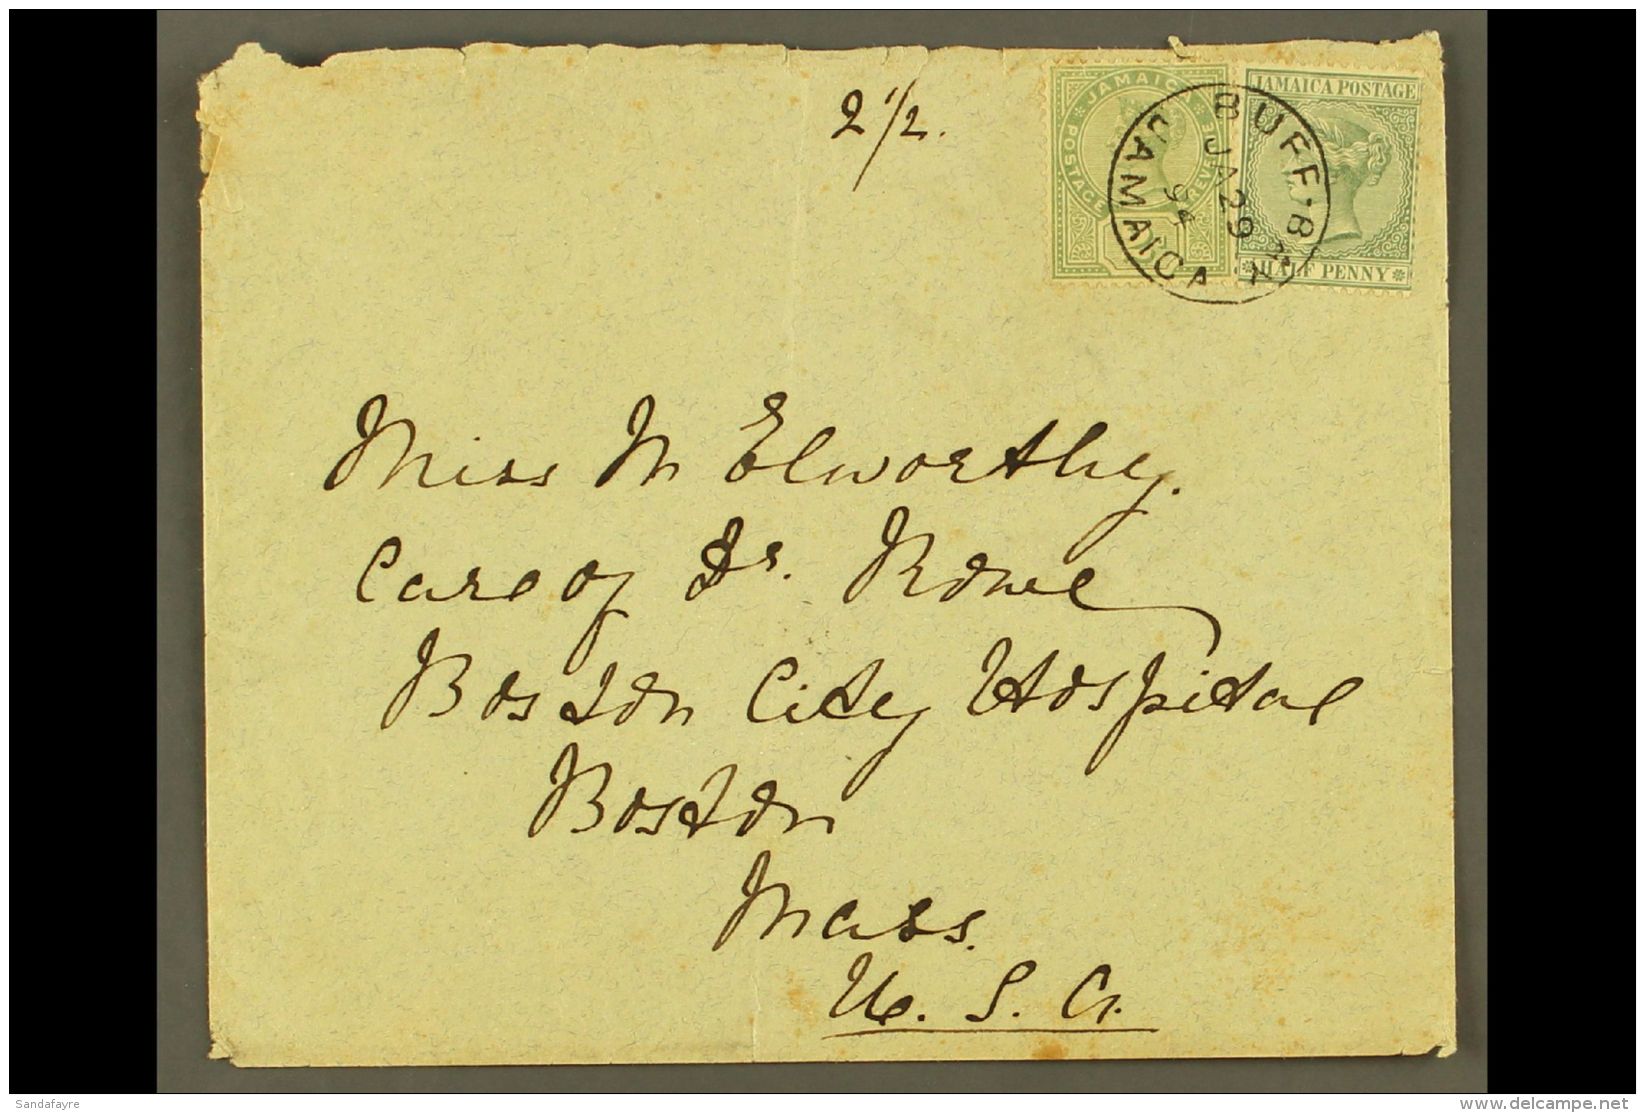 2 1/2.
JAMAICA
POSTAGE
REVENUE
JAMAICA POSTAGE
HALF PENNY
BUFF-B
JA 29
94
JAMAICA
Miss M Elworthy.
Care of Dr. Rowe
Boston City Hospital
Boston
Mass.
U. S. A.
Sandafayre
www.delcampe.net